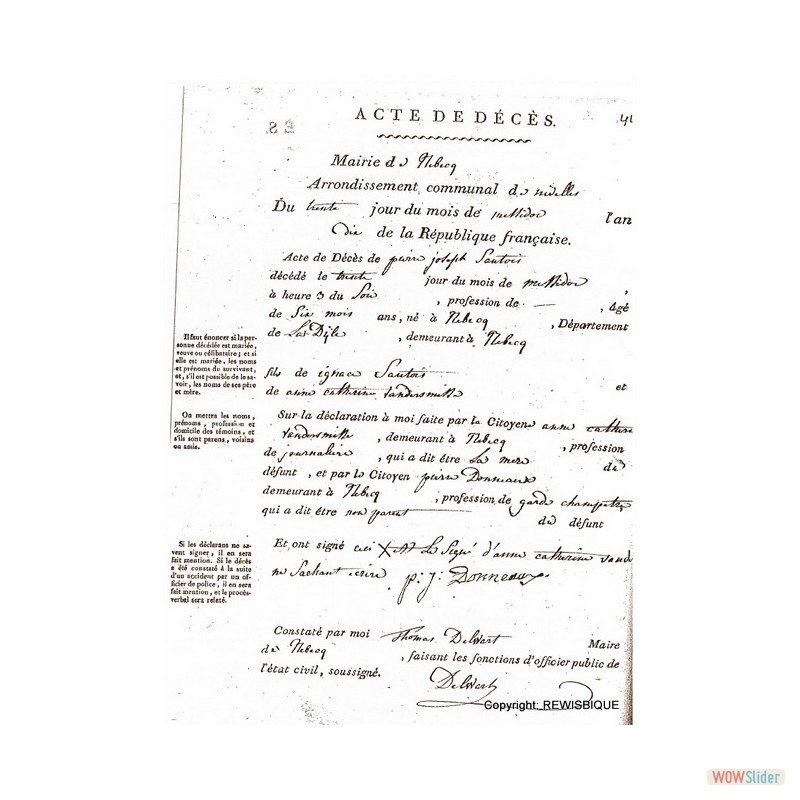 ACTE DE DÉCÈS.
Mairie de Rebecq
Arrondissement communal de nivelles
Du trente jour du mois de messidor l'an
dix de la République française.
Acte de Décès de pierre joseph Sautois
décédé le trente jour du mois de messidor ,
à heure 3 du Soir , profession de — , âgé
de Six mois ans, né à Rebecq , Département
de La Dÿle , demeurant à Rebecq
Il faut énoncer si la per-
sonne décédée est mariée,
veuve ou célibataire ; et si
elle est mariée, les noms
et prénoms du survivant,
et, s'il est possible de le sa-
voir, les noms de ses père
et mère.
fils de ignace Sautois et
de anne catherine vandersmitte
On mettra les noms,
prénoms, profession et
domicile des témoins, et
s'ils sont parens, voisins
ou amis.
Sur la déclaration à moi faite par la Citoyenne anne catherine
vandersmitte , demeurant à Rebecq , profession
de journaliere , qui a dit être La mere de
défunt, et par le Citoyen pierre Donneaux
demeurant à Rebecq , profession de garde champetre
qui a dit être non parent du défunt
Si les déclarans ne sa-
vent signer, il en sera
fait mention. Si le décès
a été constaté à la suite
d'un accident par un of-
ficier de police, il en sera
fait mention, et le procès-
verbal sera relaté.
Et ont signé ceci X est Le Signé d'anne catherine vand
ne Sachant écrire p: j: Donneaux
Constaté par moi Thomas Delwart Maire
de Rebecq , faisant les fonctions d'officier public de
l'état civil, soussigné.
Delwart
Copyright: REWISBIQUE
WOWSlider